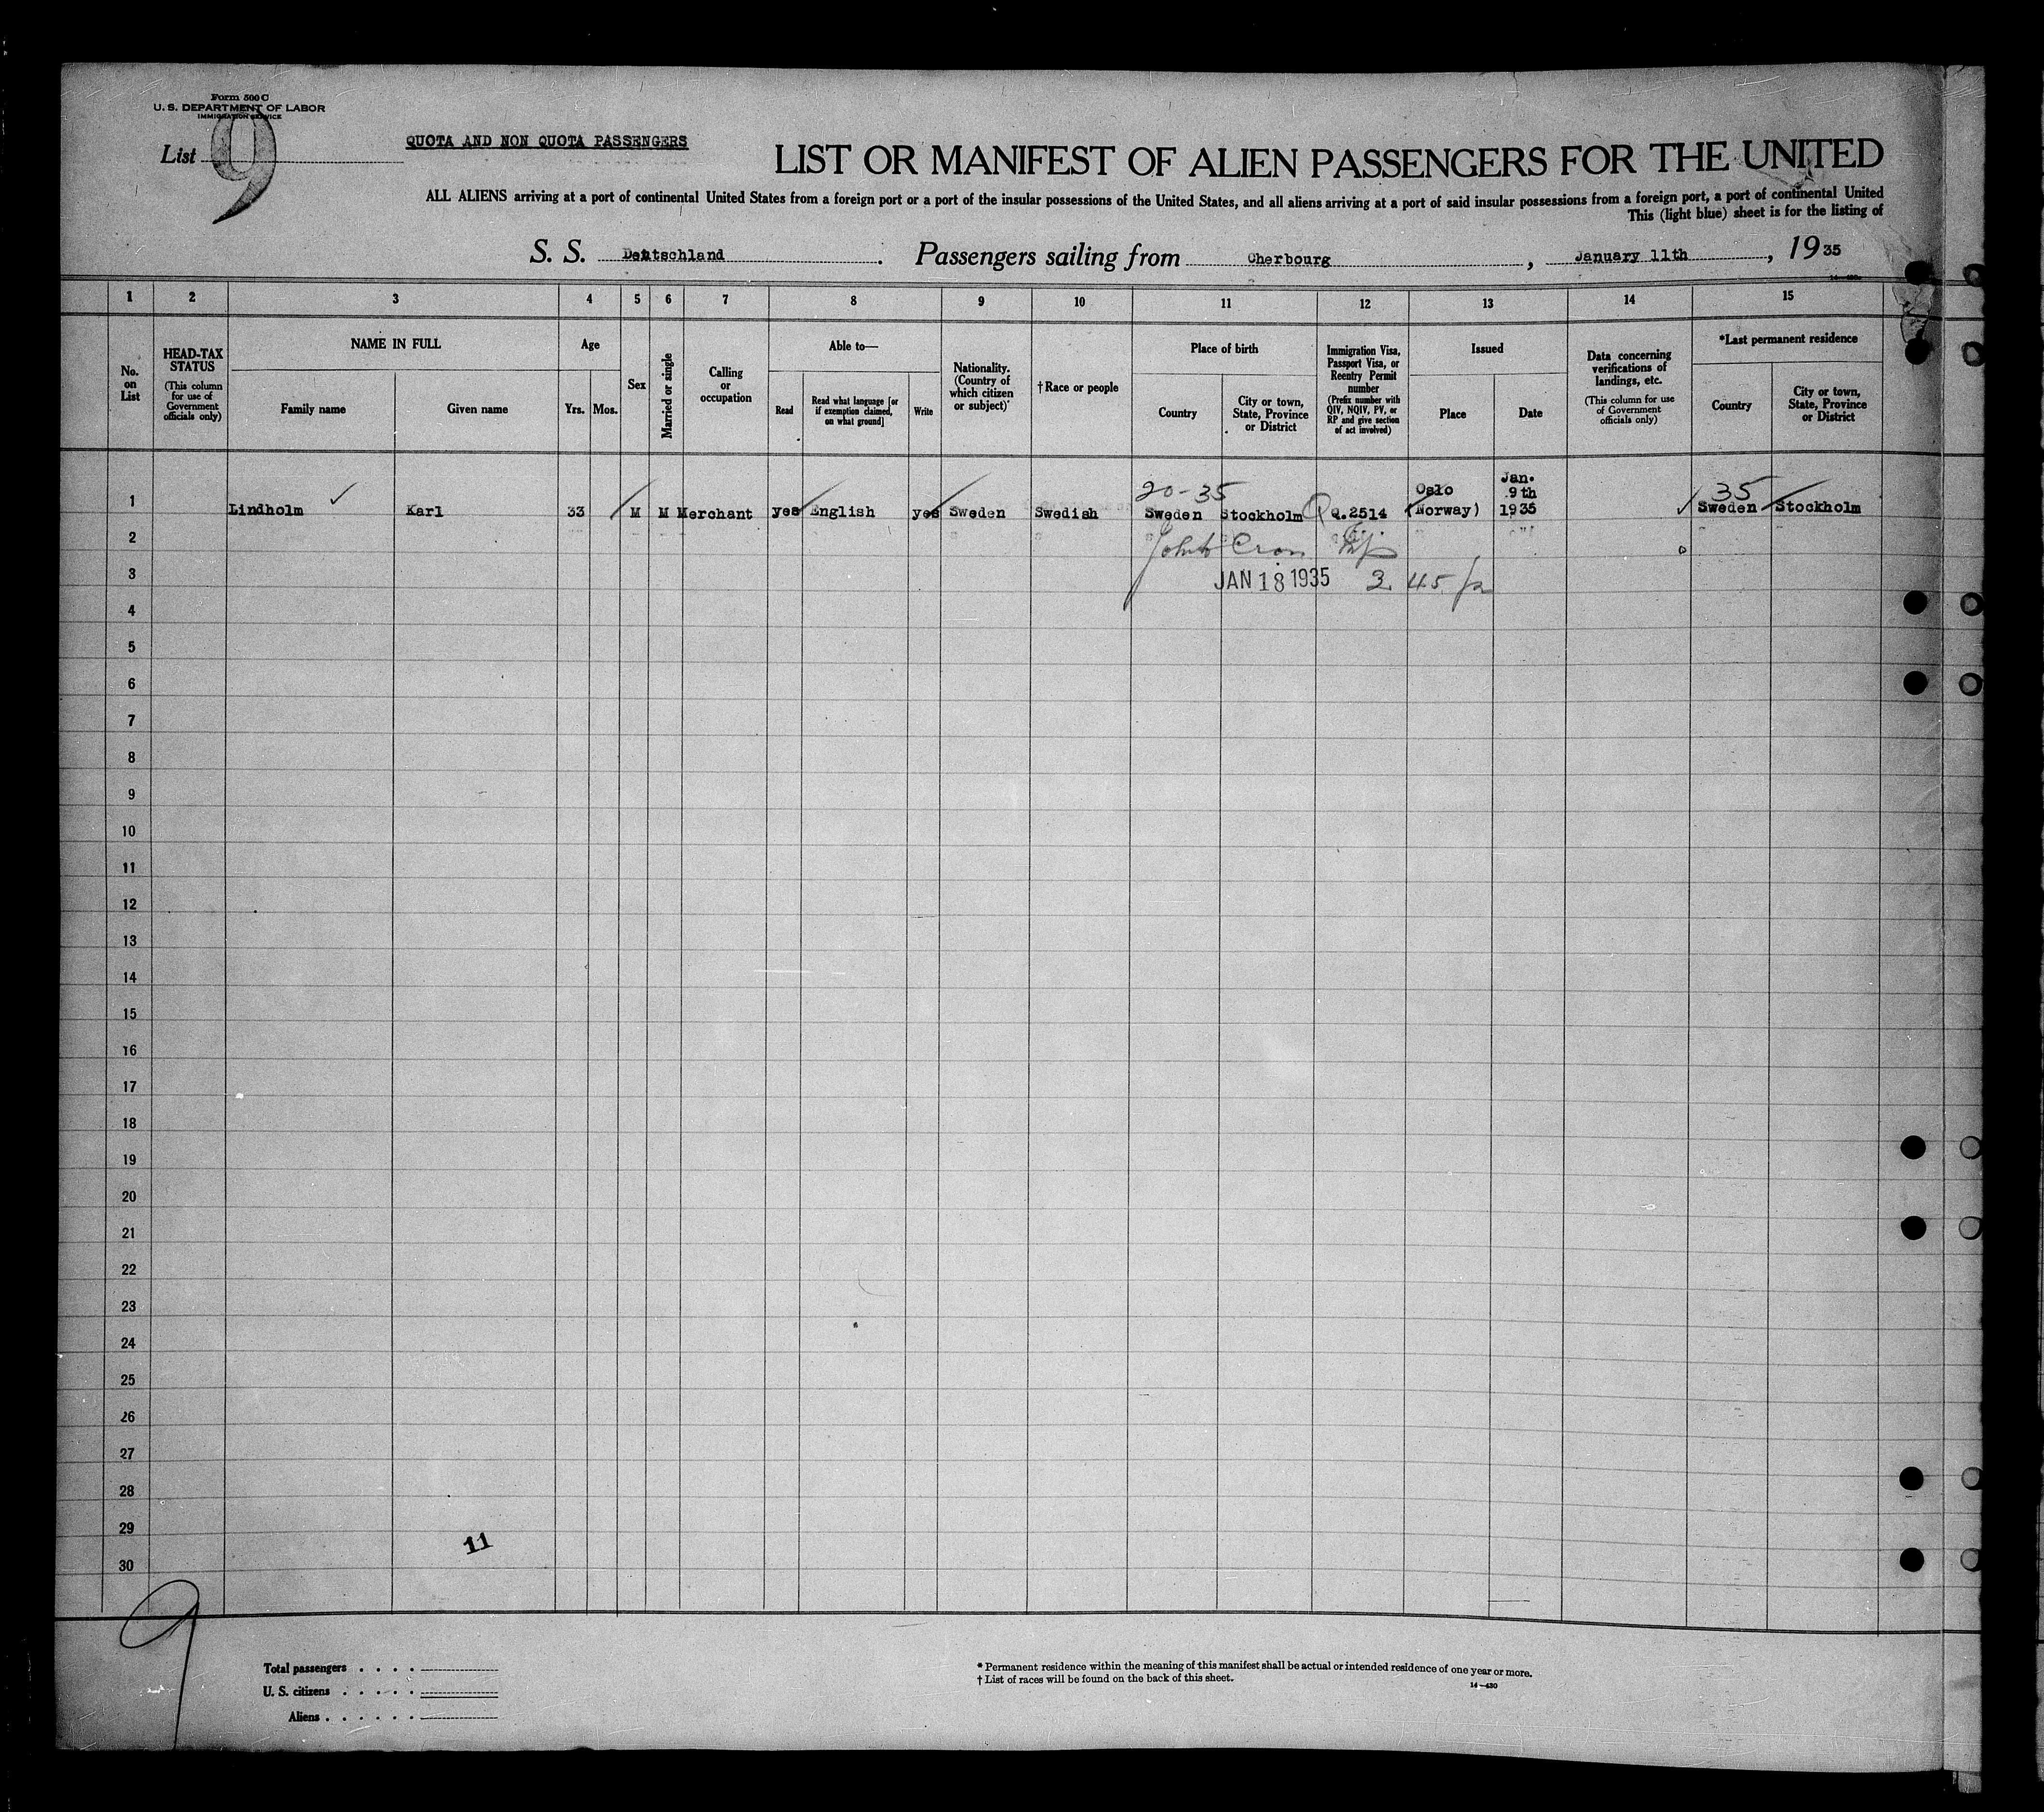 Form 500 C
U. S. DEPARTMENT OF LABOR
IMMIGRATION SERVICE
List 9
QUOTA AND NON QUOTA PASSENGERS
LIST OR MANIFEST OF ALIEN PASSENGERS FOR THE UNITED
ALL ALIENS arriving at a port of continental United States from a foreign port or a port of the insular possessions of the United States, and all aliens arriving at a port of said insular possessions from a foreign port, a port of continental United
This (light blue) sheet is for the listing of
S. S. Deutschland. Passengers sailing from Cherbourg, January 11th, 1935
14-430
1 2 3 4 5 6 7 8 9 10 11 12 13 14 15
No. on List
HEAD-TAX STATUS
(This column for use of Government officials only)
NAME IN FULL
Family name
Given name
Age
Yrs.
Mos.
Sex
Married or single
Calling or occupation
Able to—
Read
Read what language [or if exemption claimed, on what ground]
Write
Nationality. (Country of which citizen or subject)
†Race or people
Place of birth
Country
City or town, State, Province or District
Immigration Visa, Passport Visa, or Reentry Permit number
(Prefix number with QIV, NQIV, PV, or RP and give section of act involved)
Issued
Place
Date
Data concerning verifications of landings, etc.
(This column for use of Government officials only)
*Last permanent residence
Country
City or town, State, Province or District
20-35
35
1 Lindholm Karl 33 M M Merchant yes English yes Sweden Swedish Sweden Stockholm Q Q.2514 Oslo (Norway) Jan. 9th 1935 Sweden Stockholm
2
3 JAN 18 1935 3 45
4
5
6
7
8
9
10
11
12
13
14
15
16
17
18
19
20
21
22
23
24
25
26
27
28
29
11
30
9
Total passengers . . . .
U. S. citizens . . . . .
Aliens . . . . . .
* Permanent residence within the meaning of this manifest shall be actual or intended residence of one year or more.
† List of races will be found on the back of this sheet.
14—430